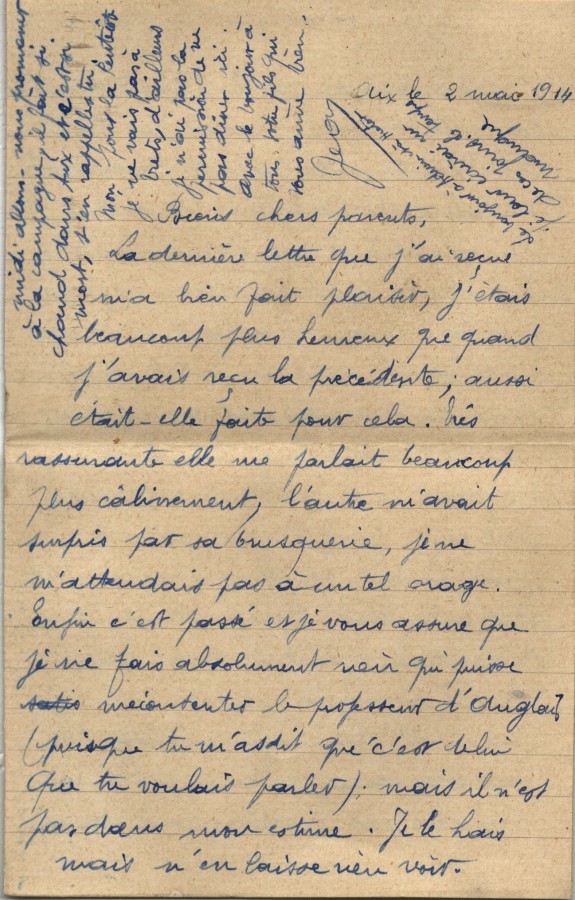 Aix le 2 mai 1914
Biens chers parents,
La dernière lettre que j'ai reçue
m'a bien fait plaisir, j'étais
beaucoup plus heureux que quand
j'avais reçu la précédente ; aussi
était-elle faite pour cela. Très
rassurante elle me parlait beaucoup
plus câlinement, l'autre m'avait
surpris par sa brusquerie, je ne
m'attendais pas à un tel orage.
Enfin c'est passé et je vous assure que
je ne fais absolument rien qui puisse
mécontenter le professeur d'Anglais
(puisque tu m'as dit que c'est de lui
que tu voulais parler); mais il n'est
pas dans mon estime. Je le hais
mais n'en laisse rien voir.
midi allons-nous promener
à la campagne, il fait si
chaud dans Aix et c'est si
mort, t'en rappelles tu
Non, pour la Pentecôte
je ne vais pas à
d'ailleurs
je n'ai pas la
permission de ne
pas dîner ici.
avec le bonjour à
tous. Votre fils qui
vous aime bien.
Jean